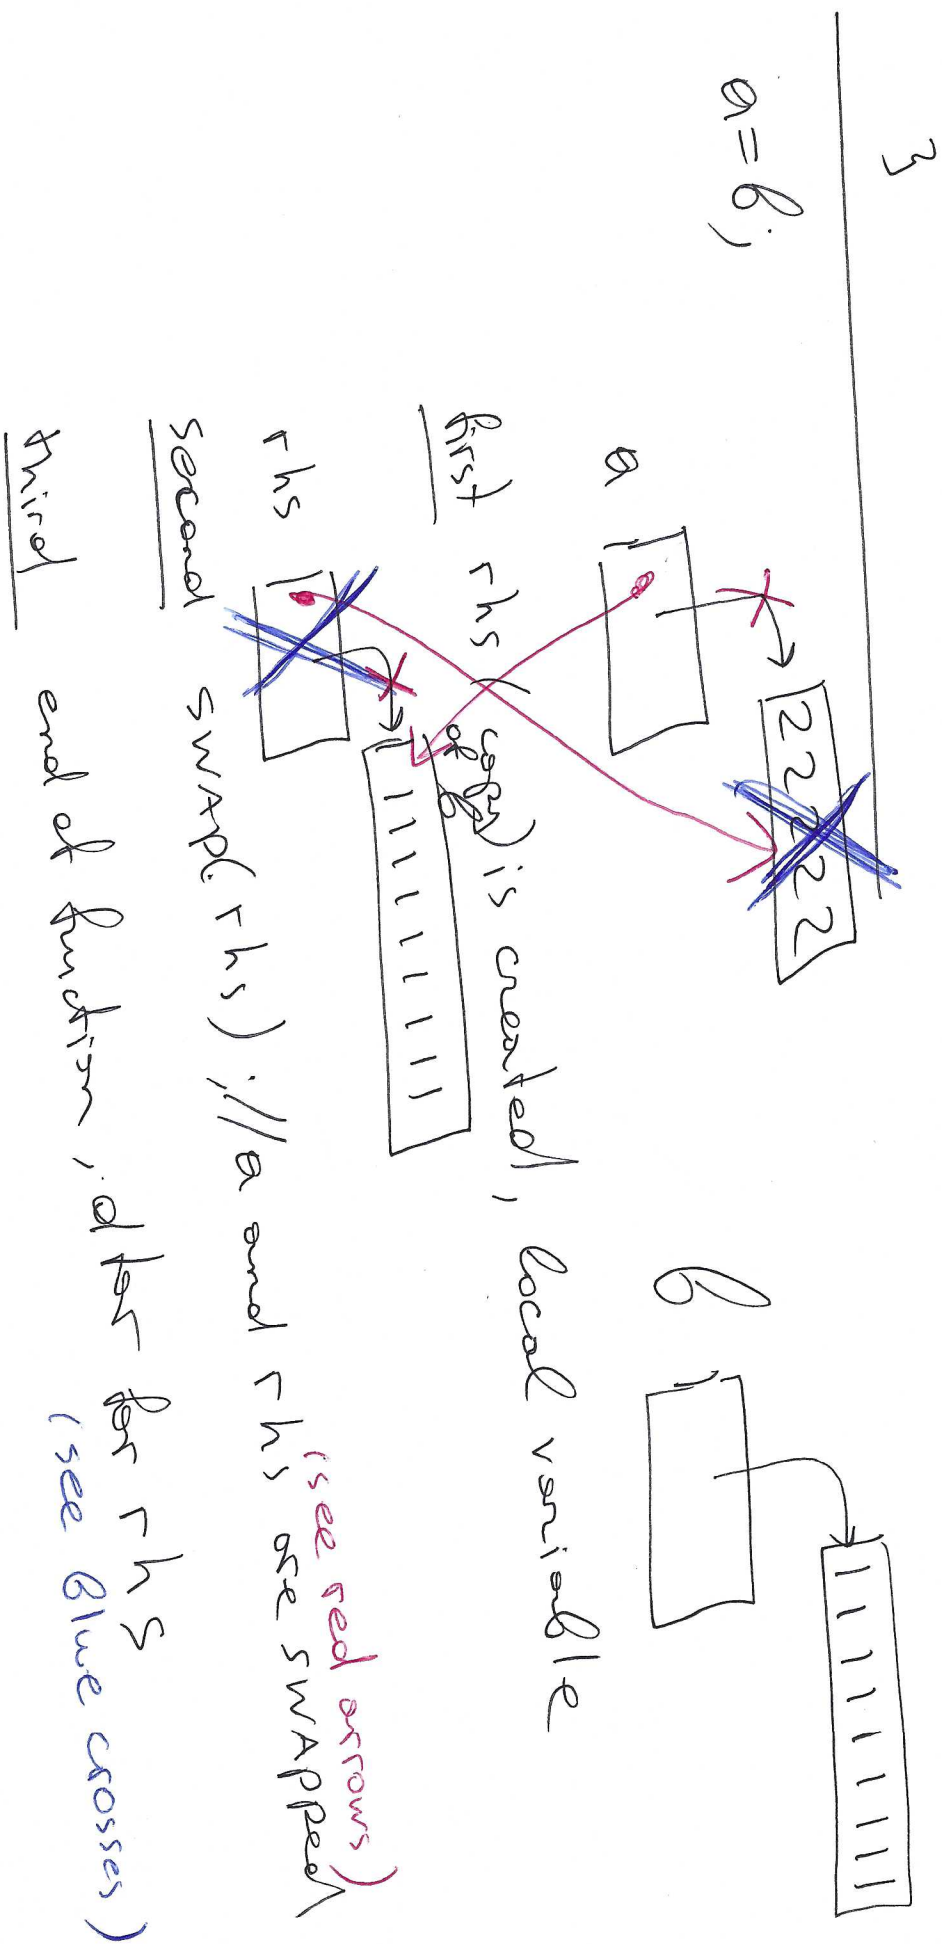 3
a=b;
a 22222 b 11111111
first rhs (copy of b) is created, local variable
rhs 11111111
(see red arrows)
second swap(rhs); // a and rhs are swapped
third end of function, dtor for rhs
(see blue crosses)